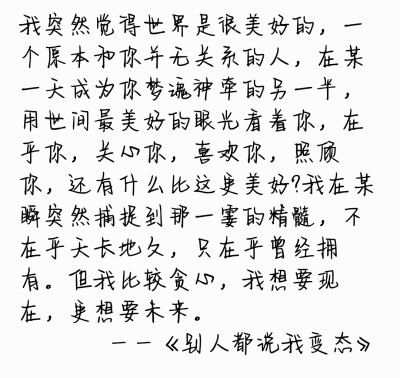 我突然觉得世界是很美好的，一
个原本和你并无关系的人，在某
一天成为你梦魂神牵的另一半，
用世间最美好的眼光看着你，在
乎你，关心你，喜欢你，照顾
你，还有什么比这更美好?我在某
瞬突然捕捉到那一霎的精髓，不
在乎天长地久，只在乎曾经拥
有。但我比较贪心，我想要现
在，更想要未来。
——《别人都说我变态》